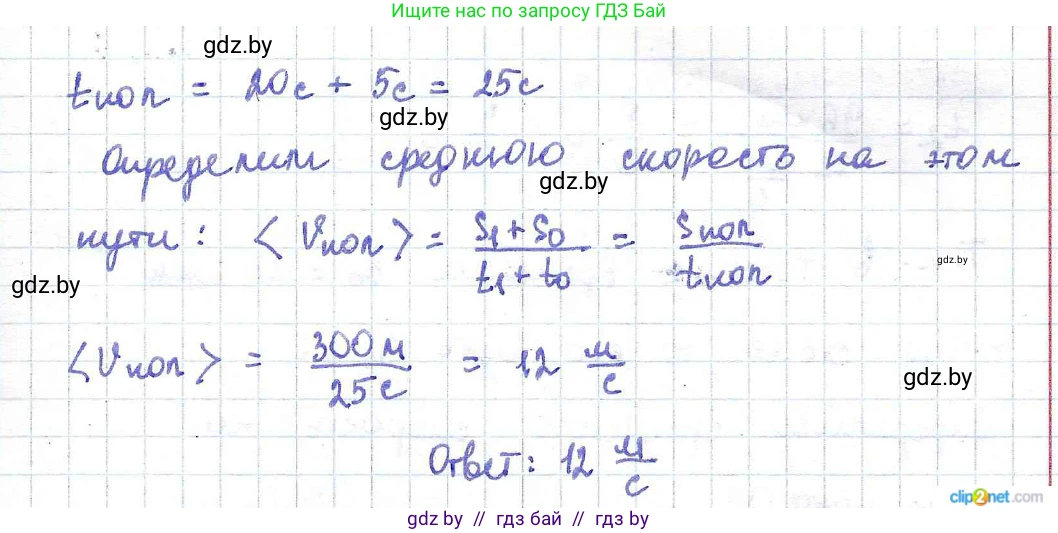 Ищите нас по запросу ГДЗ Бай
gdz.by
tкоп = 20с + 5с = 25с
gdz.by
Определим среднюю скорость на этом
gdz.by
пути: ⟨Vкоп⟩ = (S₁ + S₀)/(t₁ + t₀) = Sкоп/tкоп
gdz.by
gdz.by
⟨Vкоп⟩ = 300м/25с = 12 м/с
gdz.by
Ответ: 12 м/с
clip2net.com
gdz by // гдз бай // гдз by